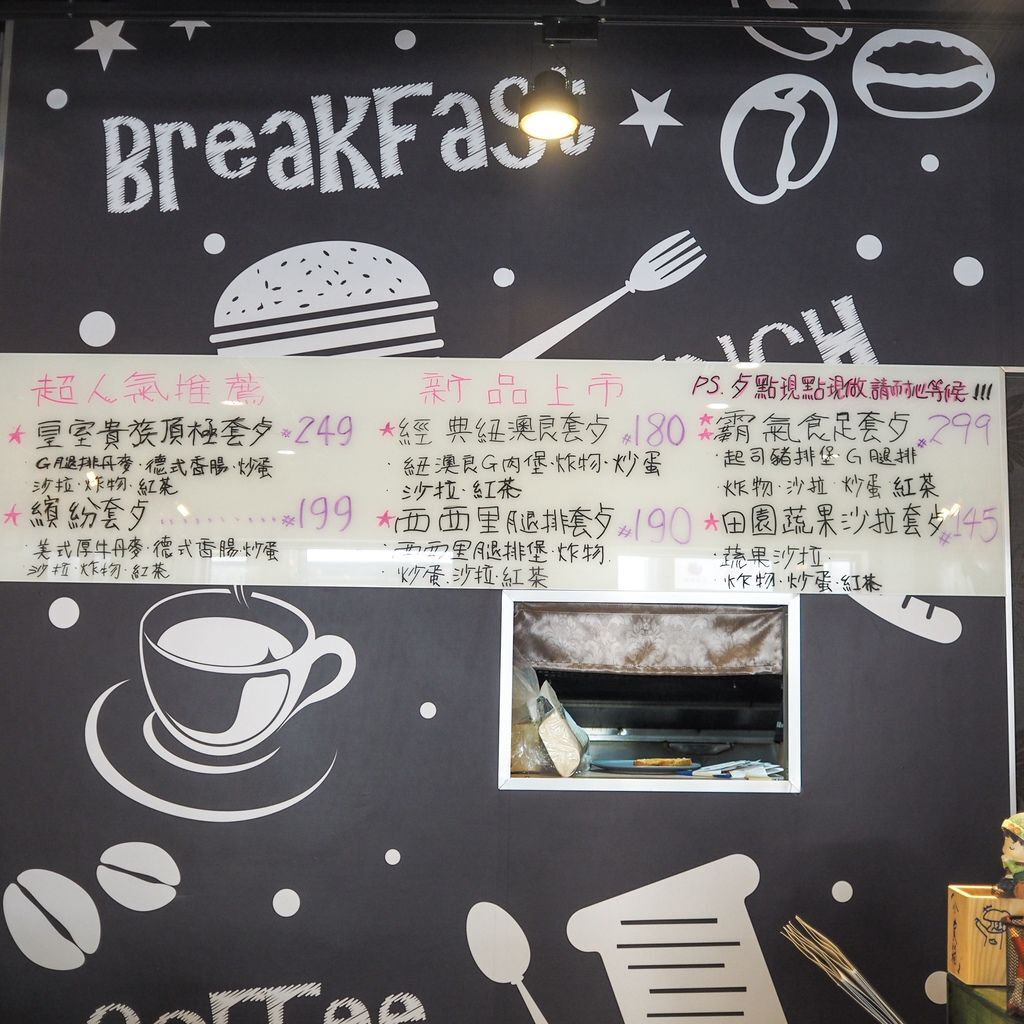 BreaKFasT
NCH
超人氣推薦
皇室貴族頂極套歺 $249
G腿排丹麥·德式香腸·炒蛋
沙拉·炸物·紅茶
繽紛套歺 $199
美式厚牛丹麥·德式香腸炒蛋
沙拉·炸物·紅茶
新品上市
經典紐澳良套歺 $180
紐澳良G肉堡·炸物·炒蛋
沙拉·紅茶
西西里腿排套歺 $190
西西里腿排堡·炸物·
炒蛋·沙拉·紅茶
PS.歺點現點現做請耐心等候!!!
霸氣食足套歺 $299
起司豬排堡·G腿排
炸物·沙拉·炒蛋·紅茶
田園蔬果沙拉套歺 $145
蔬果沙拉·
炸物·炒蛋·紅茶
coFFee